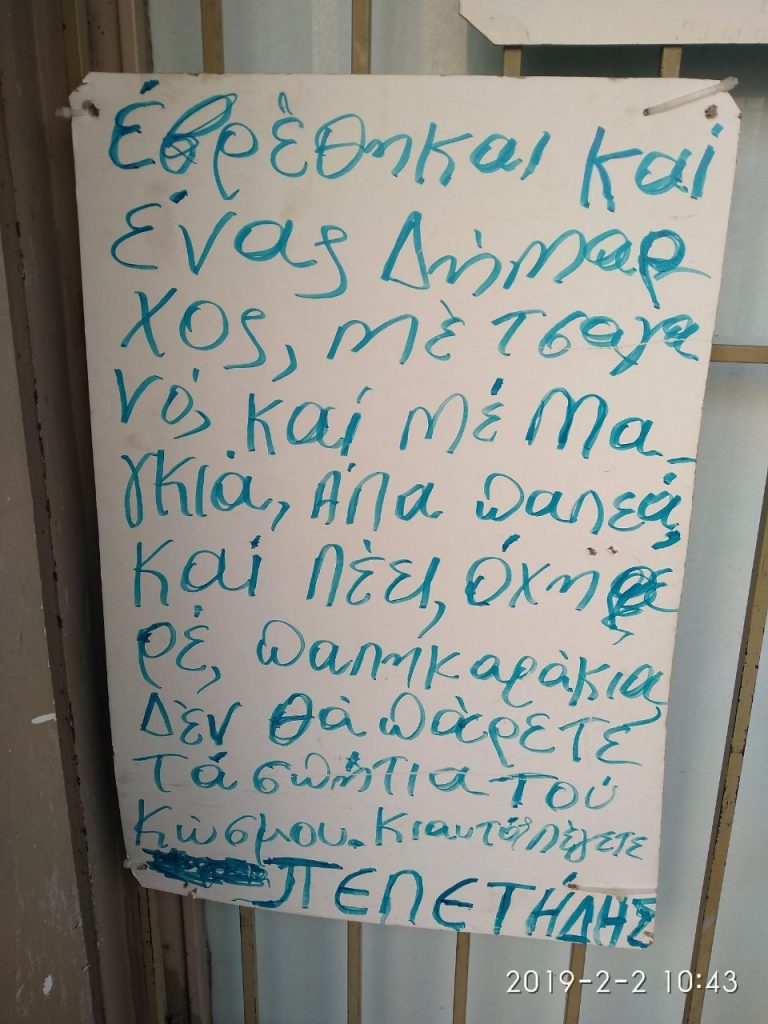 έβρέθηκαι καί
ένας Δήμαρ
χος, μέ τσαγα
νό, καί μέ μα_
γκιά, άλα παλεά,
καί λέει, όχη
ρέ, παληκαράκια
Δέν θά πάρετε
τά σπήτια τού
κώσμου. Κιαυτός λέγετε
ΠΕΛΕΤΉΔΗΣ
2019-2-2 10:43